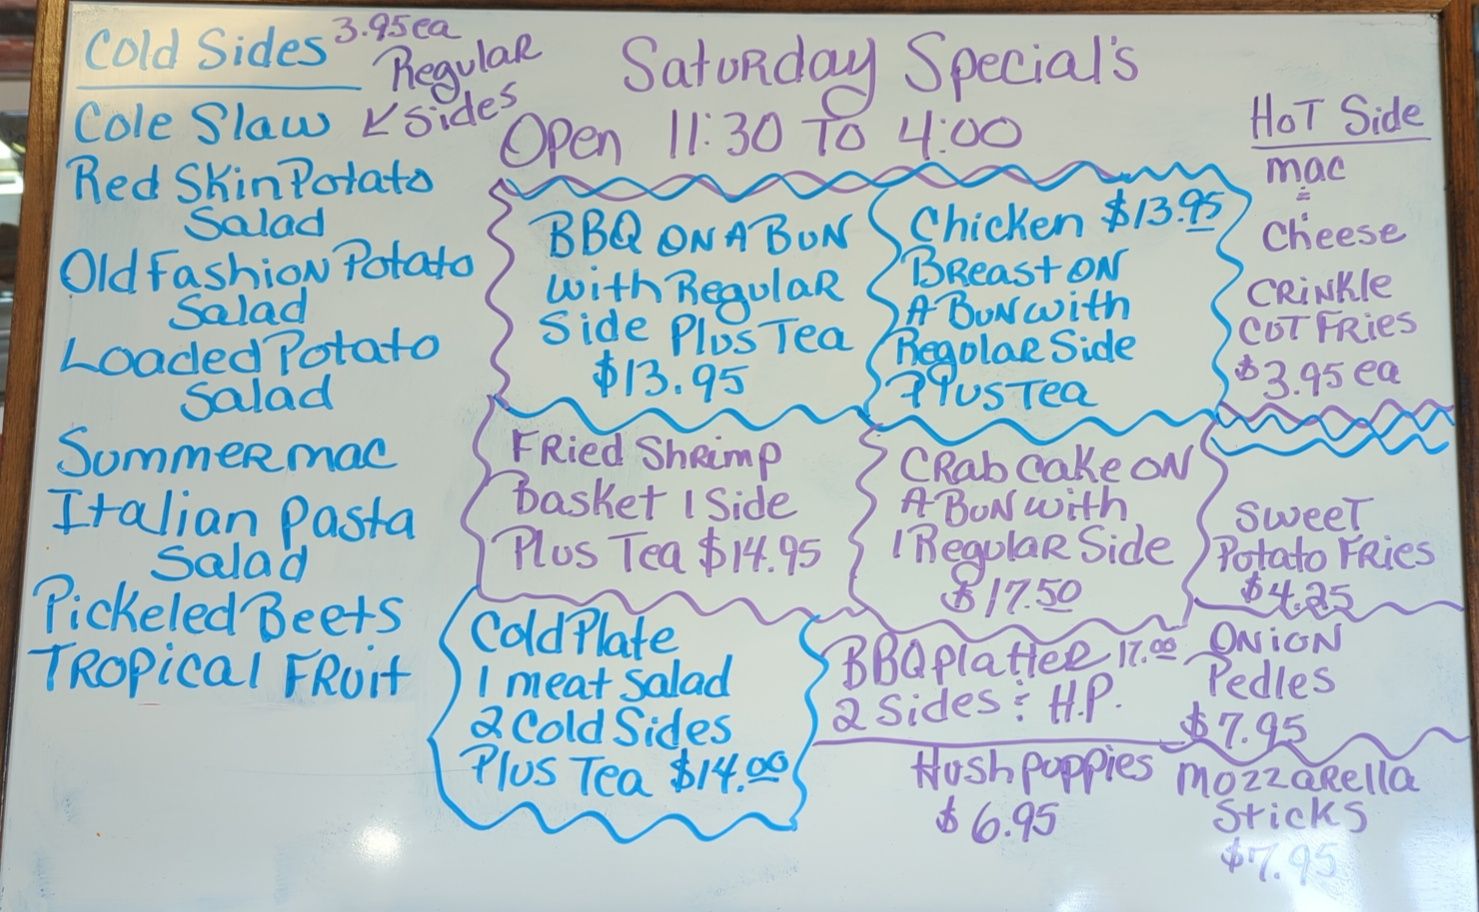 Cold Sides 3.95ea
Regular
↙ Sides
Cole Slaw
Red Skin Potato
Salad
Old Fashion Potato
Salad
Loaded Potato
Salad
Summer mac
Italian Pasta
Salad
Pickeled Beets
Tropical Fruit
Saturday Special's
Open 11:30 To 4:00
BBQ ON A BUN
with Regular
Side Plus Tea
$13.95
Chicken $13.95
Breast ON
A BUN with
Regular Side
Plus Tea
Fried Shrimp
Basket 1 Side
Plus Tea $14.95
Crab cake ON
A BUN with
1 Regular Side
$17.50
Cold Plate
1 meat salad
2 Cold Sides
Plus Tea $14.00
BBQ Platter 17.00
2 Sides & H.P.
Hushpuppies
$6.95
Hot Side
mac
&
Cheese
Crinkle
Cut Fries
$3.95 ea
Sweet
Potato Fries
$4.25
Onion
Pedles
$7.95
Mozzarella
Sticks
$7.95